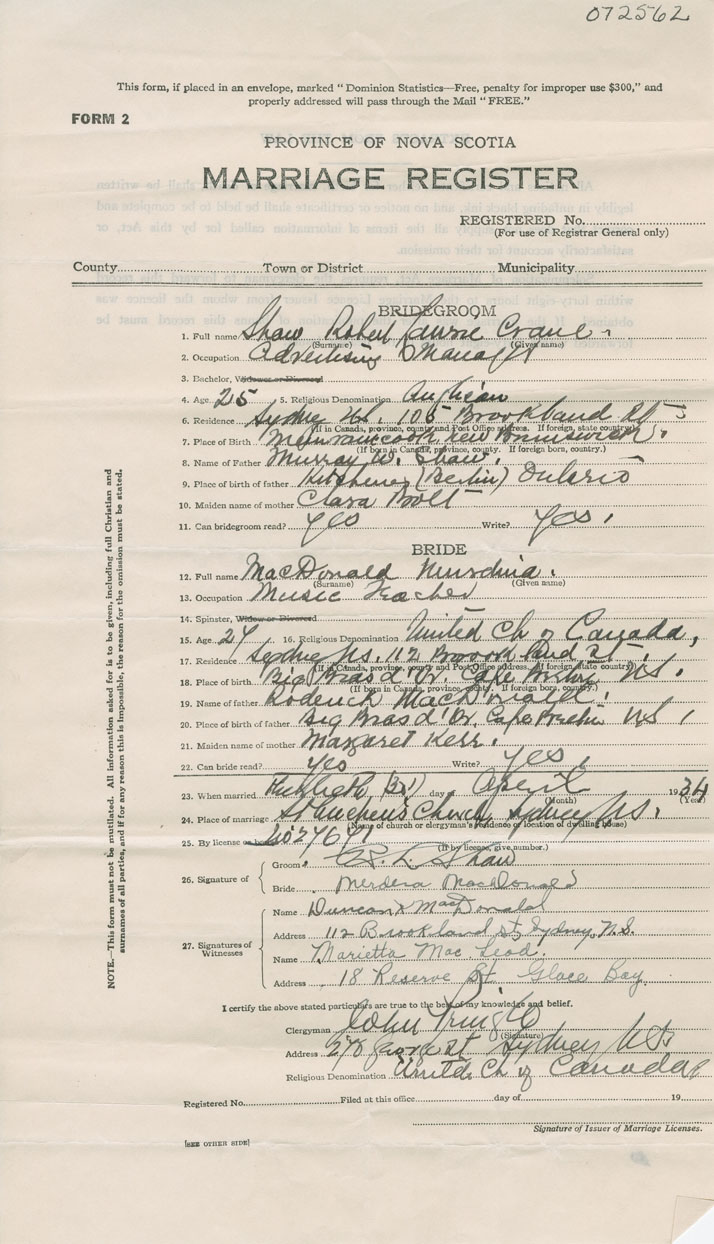 072562
This form, if placed in an envelope, marked "Dominion Statistics—Free, penalty for improper use $300," and
properly addressed will pass through the Mail "FREE."
FORM 2
PROVINCE OF NOVA SCOTIA
MARRIAGE REGISTER
REGISTERED No.
(For use of Registrar General only)
County Town or District Municipality
BRIDEGROOM
1. Full name Shaw Robert Lawrie Crane
(Surname) (Given name)
2. Occupation Advertising Manager
3. Bachelor, Widower or Divorced
4. Age 25 5. Religious Denomination Anglican
6. Residence Sydney N.S. 105 Brookland St
(If in Canada, province, county and Post Office address. If foreign, state country)
7. Place of Birth New Brunswick
(If born in Canada, province, county. If foreign born, country.)
8. Name of Father Murray W. Shaw.
9. Place of birth of father Kitchener (Berlin) Ontario
10. Maiden name of mother Clara Bolt
11. Can bridegroom read? Yes Write? Yes
BRIDE
12. Full name MacDonald Murdina.
(Surname) (Given name)
13. Occupation Music Teacher
14. Spinster, Widow or Divorced
15. Age 24 16. Religious Denomination United Ch of Canada,
17. Residence Sydney N.S. 112 Broookland St.
(If in Canada, province, county and Post Office address. If foreign, state country)
18. Place of Birth Big Bras d'Or. Cape Breton NS.
(If born in Canada, province, county. If foreign born, country.)
19. Name of father Roderick MacDonald.
20. Place of birth of father Big Bras d'Or, Cape Breton NS
21. Maiden name of mother Margaret Kerr.
22. Can bride read? Yes Write? Yes
23. When married day April 1934
(Month) (Year)
24. Place of marriage Church, Sydney N.S.
(Name of church or clergyman's residence or location of dwelling house)
25. By license or banns
(If by license, give number.)
26. Signature of
Groom R. L. Shaw
Bride Merdena MacDonald
27. Signatures of Witnesses
Name Duncan MacDonald
Address 112 Brookland St, Sydney, N.S.
Name Marietta Mac Leod.
Address 18 Reserve St. Glace Bay.
I certify the above stated particulars are true to the best of my knowledge and belief.
Clergyman John Pringle
(Signature)
Address George St Sydney N.S.
Religious Denomination United Ch of Canada
Registered No. Filed at this office day of 19
Signature of Issuer of Marriage Licenses.
[SEE OTHER SIDE]
NOTE.—This form must not be mutilated. All information asked for is to be given, including full Christian and
surnames of all parties, and if for any reason this is impossible, the reason for the omission must be stated.